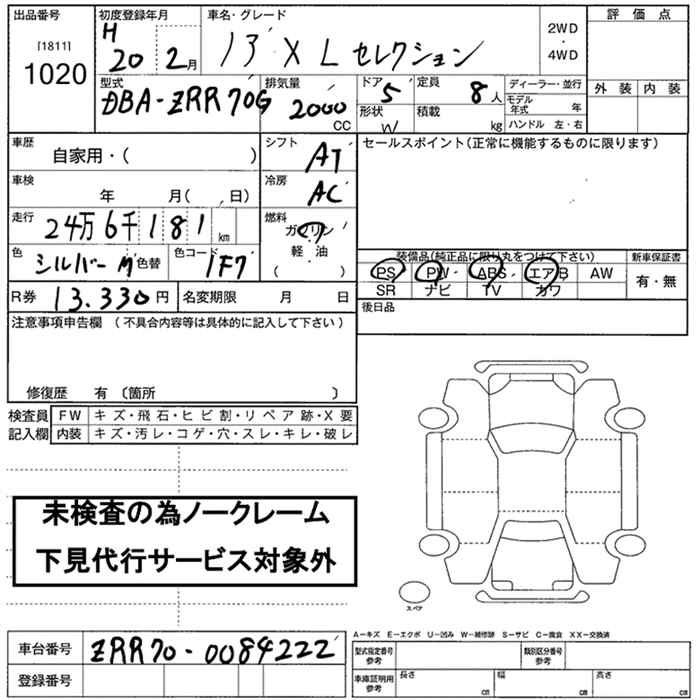 出品番号 初度登録年月 車名・グレード 評価点
[1811] H 2WD
1020 20 2月 ノア X L セレクション ・
4WD
型式 排気量 ドア 定員 ディーラー・並行 外装 内装
DBA-ZRR70G 2000 CC 5 8人 モデル年式 年
形状 W 積載 kg ハンドル 左・右
車歴 シフト セールスポイント(正常に機能するものに限ります)
自家用・( ) AT
車検 冷房
年 月( 、 日) AC
走行 24万6千181km 燃料
ガソリン
色 シルバーM 色替 色コード 1F7 軽・油
( )
装備品(純正品に限り丸をつけて下さい) 新車保証書
PS PW ABS エアB AW 有・無
SR ナビ TV カワ
R券 13.330円 名変期限 月 日 後日品
注意事項申告欄 (不具合内容等は具体的に記入して下さい)
修復歴 有 〔箇所 〕
検査員 FW キズ・飛石・ヒビ割・リペア跡・X要
記入欄 内装 キズ・汚レ・コゲ・穴・スレ・キレ・破レ
未検査の為ノークレーム
下見代行サービス対象外
スペア
A−キズ E−エクボ U−凹み W−補修跡 S−サビ C−腐食 XX−交換済
車台番号 ZRR70-0084222 型式指定番号 参考 類別区分番号 参考
登録番号 車庫証明用 参考 長さ cm 幅 cm 高さ cm